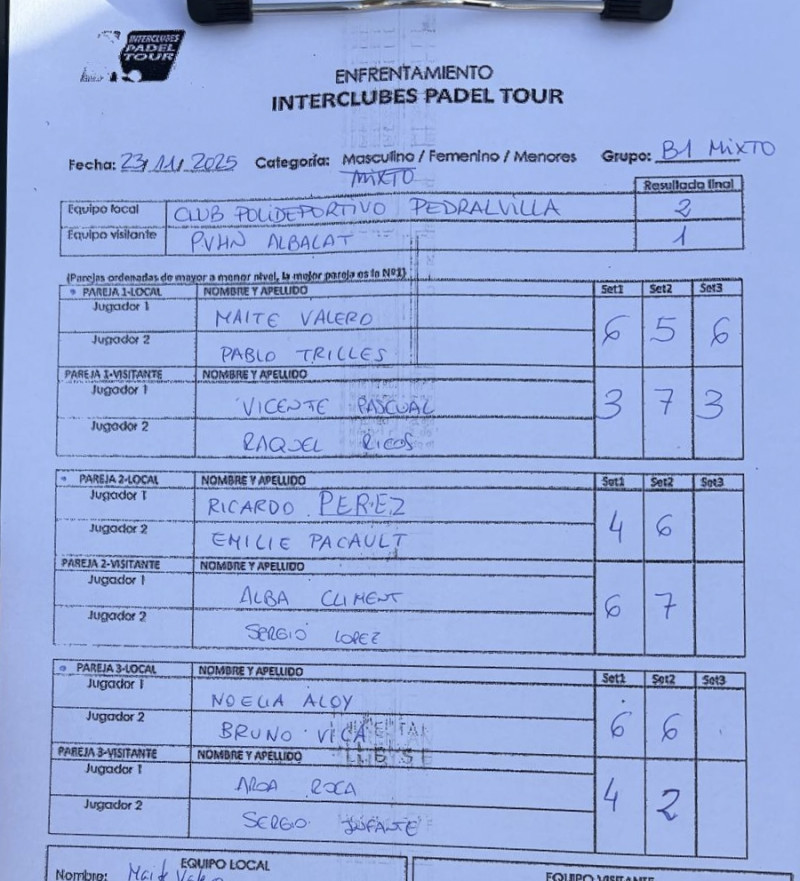 INTERCLUBES
PADEL
TOUR
ENFRENTAMIENTO
INTERCLUBES PADEL TOUR
Fecha: 23/11/2025 Categoría: Masculino / Femenino / Menores Grupo: B1 MIXTO
MIXTO
Resultado final
Equipo local CLUB POLIDEPORTIVO PEDRALVILLA 2
Equipo visitante PVHN ALBALAT 1
(Parejas ordenadas de mayor a menor nivel, la mejor pareja es la Nº1)
PAREJA 1-LOCAL NOMBRE Y APELLIDO Set1 Set2 Set3
Jugador 1 MAITE VALERO 6 5 6
Jugador 2 PABLO TRILLES
PAREJA 1-VISITANTE NOMBRE Y APELLIDO
Jugador 1 VICENTE PASCUAL 3 7 3
Jugador 2 RAQUEL RICOS
PAREJA 2-LOCAL NOMBRE Y APELLIDO Set1 Set2 Set3
Jugador 1 RICARDO PEREZ 4 6
Jugador 2 EMILIE PACAULT
PAREJA 2-VISITANTE NOMBRE Y APELLIDO
Jugador 1 ALBA CLIMENT 6 7
Jugador 2 SERGIO LOPEZ
PAREJA 3-LOCAL NOMBRE Y APELLIDO Set1 Set2 Set3
Jugador 1 NOELIA ALOY 6 6
Jugador 2 BRUNO VICA
PAREJA 3-VISITANTE NOMBRE Y APELLIDO
Jugador 1 ROCA 4 2
Jugador 2 SERGIO INFANTE
EQUIPO LOCAL EQUIPO VISITANTE
Nombre: Maite Valero